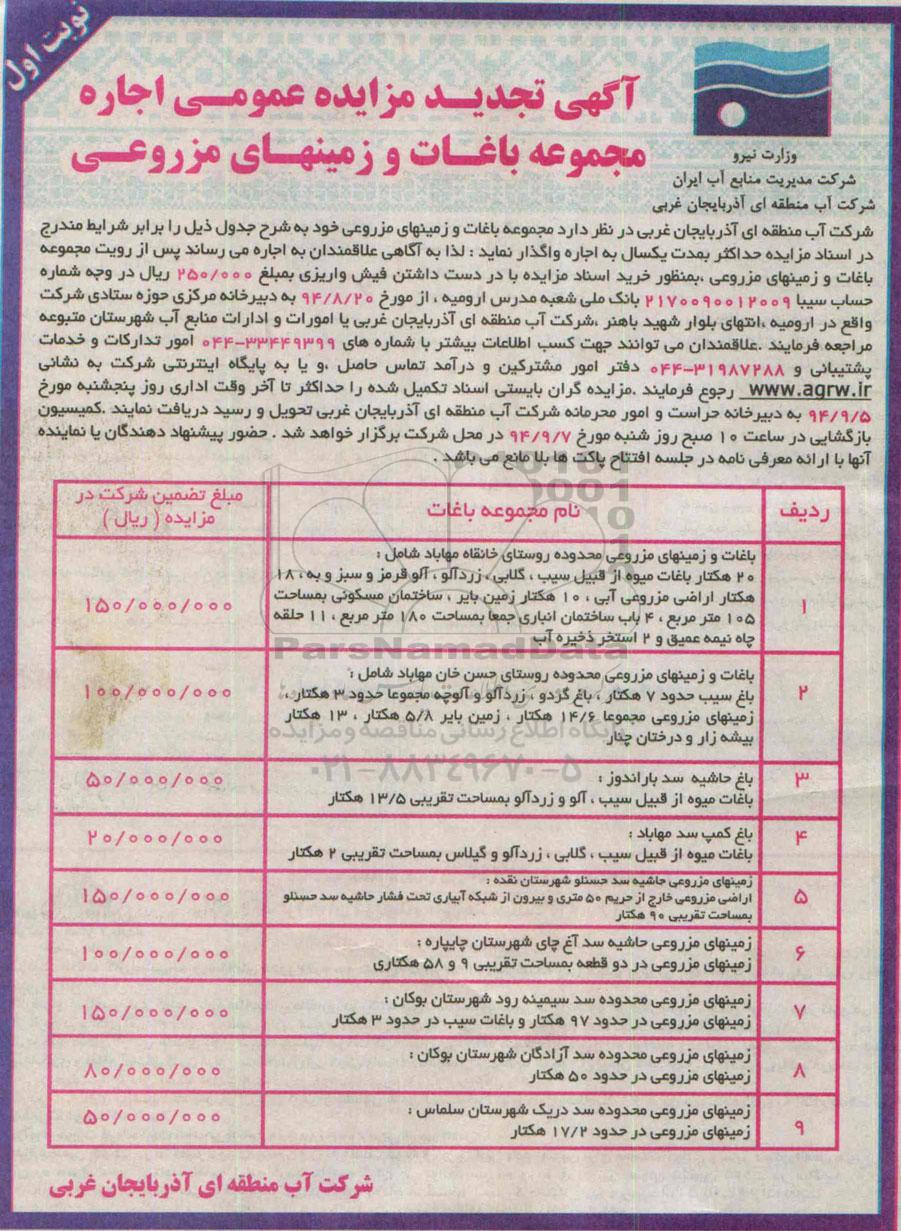 نوبت اول
آگهی تجدید مزایده عمومی اجاره
مجموعه باغات و زمینهای مزروعی
وزارت نیرو
شرکت مدیریت منابع آب ایران
شرکت آب منطقه ای آذربایجان غربی
شرکت آب منطقه ای آذربایجان غربی در نظر دارد مجموعه باغات و زمینهای مزروعی خود به شرح جدول ذیل را برابر شرایط مندرج
در اسناد مزایده حداکثر بمدت یکسال به اجاره واگذار نماید : لذا به آگاهی علاقمندان به اجاره می رساند پس از رویت مجموعه
باغات و زمینهای مزروعی ،بمنظور خرید اسناد مزایده با در دست داشتن فیش واریزی بمبلغ ۲۵۰/۰۰۰ ریال در وجه شماره
حساب سیبا ۲۱۷۰۰۹۰۰۱۲۰۰۹ بانک ملی شعبه مدرس ارومیه ، از مورخ ۹۴/۸/۲۰ به دبیرخانه مرکزی حوزه ستادی شرکت
واقع در ارومیه ،انتهای بلوار شهید باهنر ،شرکت آب منطقه ای آذربایجان غربی یا امورات و ادارات منابع آب شهرستان متبوعه
مراجعه فرمایند .علاقمندان می توانند جهت کسب اطلاعات بیشتر با شماره های ۳۳۴۴۹۳۹۹-۰۴۴ امور تدارکات و خدمات
پشتیبانی و ۳۱۹۸۷۲۸۸-۰۴۴ دفتر امور مشترکین و درآمد تماس حاصل ،و یا به پایگاه اینترنتی شرکت به نشانی
www.agrw.ir رجوع فرمایند .مزایده گران بایستی اسناد تکمیل شده را حداکثر تا آخر وقت اداری روز پنجشنبه مورخ
۹۴/۹/۵ به دبیرخانه حراست و امور محرمانه شرکت آب منطقه ای آذربایجان غربی تحویل و رسید دریافت نمایند .کمیسیون
بازگشایی در ساعت ۱۰ صبح روز شنبه مورخ ۹۴/۹/۷ در محل شرکت برگزار خواهد شد . حضور پیشنهاد دهندگان یا نماینده
آنها با ارائه معرفی نامه در جلسه افتتاح پاکت ها بلا مانع می باشد .
ردیف نام مجموعه باغات مبلغ تضمین شرکت در
مزایده ( ریال )
باغات و زمینهای مزروعی محدوده روستای خانقاه مهاباد شامل :
۲۰ هکتار باغات میوه از قبیل سیب ، گلابی ، زردآلو ، آلو قرمز و سبز و به ، ۱۸
۱ هکتار اراضی مزروعی آبی ، ۱۰ هکتار زمین بایر ، ساختمان مسکونی بمساحت ۱۵۰/۰۰۰/۰۰۰
۱۰۵ متر مربع ، ۴ باب ساختمان انباری جمعا بمساحت ۱۸۰ متر مربع ، ۱۱ حلقه
چاه نیمه عمیق و ۲ استخر ذخیره آب
باغات و زمینهای مزروعی محدوده روستای حسن خان مهاباد شامل :
۲ باغ سیب حدود ۷ هکتار ، باغ گردو ، زردآلو و آلوچه مجموعا حدود ۳ هکتار ، ۱۰۰/۰۰۰/۰۰۰
زمینهای مزروعی مجموعا ۱۴/۶ هکتار ، زمین بایر ۵/۸ هکتار ، ۱۳ هکتار
بیشه زار و درختان چنار
۳ باغ حاشیه سد باراندوز : ۵۰/۰۰۰/۰۰۰
باغات میوه از قبیل سیب ، آلو و زردآلو بمساحت تقریبی ۱۳/۵ هکتار
۴ باغ کمپ سد مهاباد : ۲۰/۰۰۰/۰۰۰
باغات میوه از قبیل سیب ، گلابی ، زردآلو و گیلاس بمساحت تقریبی ۲ هکتار
زمینهای مزروعی حاشیه سد حسنلو شهرستان نقده :
۵ اراضی مزروعی خارج از حریم ۵۰ متری و بیرون از شبکه آبیاری تحت فشار حاشیه سد حسنلو ۱۵۰/۰۰۰/۰۰۰
بمساحت تقریبی ۹۰ هکتار
۶ زمینهای مزروعی حاشیه سد آغ چای شهرستان چایپاره : ۱۰۰/۰۰۰/۰۰۰
زمینهای مزروعی در دو قطعه بمساحت تقریبی ۹ و ۵۸ هکتاری
۷ زمینهای مزروعی محدوده سد سیمینه رود شهرستان بوکان : ۱۵۰/۰۰۰/۰۰۰
زمینهای مزروعی در حدود ۹۷ هکتار و باغات سیب در حدود ۳ هکتار
۸ زمینهای مزروعی محدوده سد آزادگان شهرستان بوکان : ۸۰/۰۰۰/۰۰۰
زمینهای مزروعی در حدود ۵۰ هکتار
۹ زمینهای مزروعی محدوده سد دریک شهرستان سلماس : ۵۰/۰۰۰/۰۰۰
زمینهای مزروعی در حدود ۱۷/۲ هکتار
شرکت آب منطقه ای آذربایجان غربی
ParsNamadData
پایگاه اطلاع رسانی مناقصه و مزایده
۰۲۱-۸۸۳۴۹۶۷۰-۵